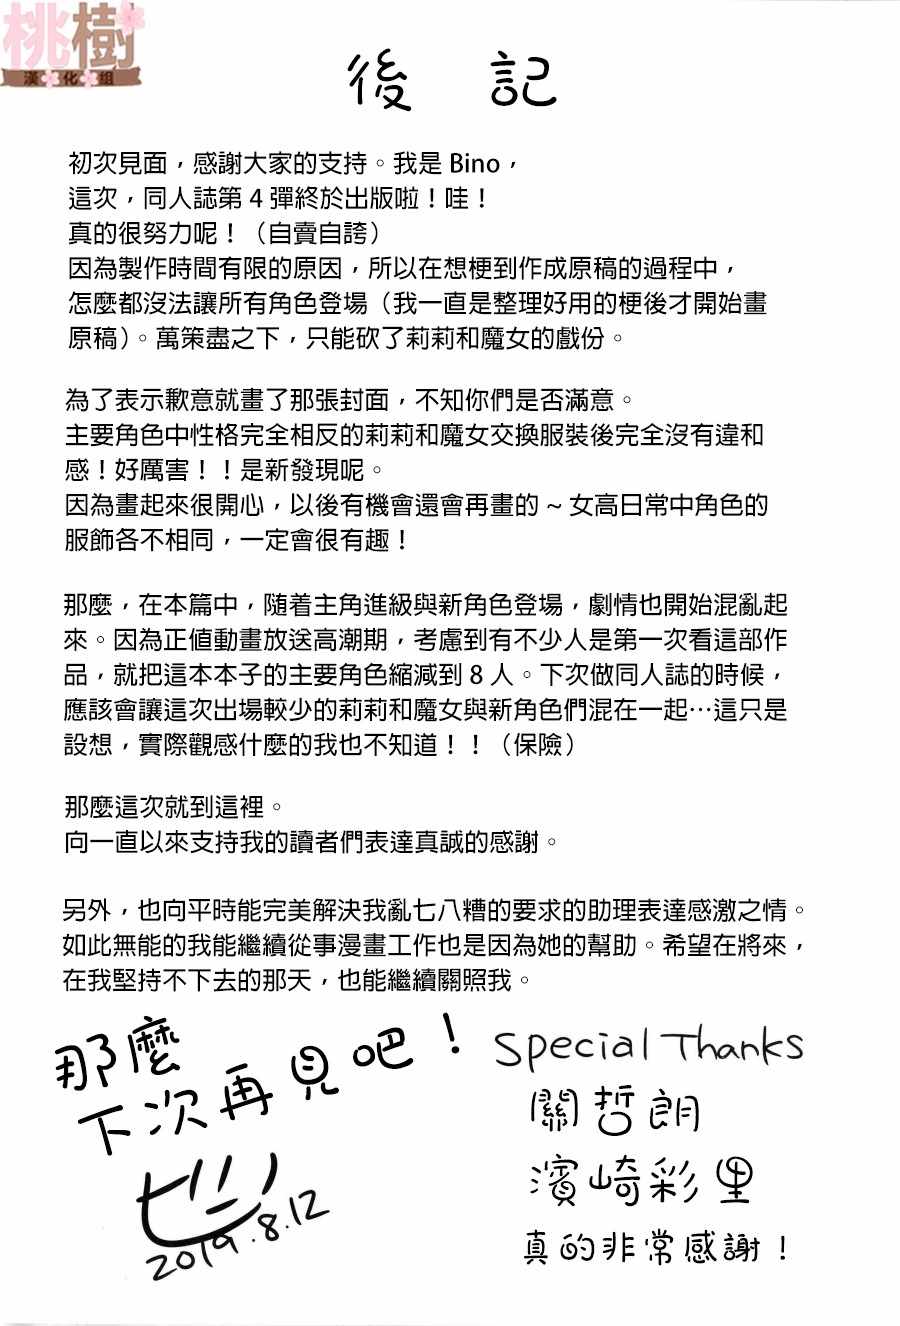 桃樹
漢化组
後 記
初次見面，感謝大家的支持。我是 Bino，
這次，同人誌第 4 彈終於出版啦！哇！
真的很努力呢！（自賣自誇）
因為製作時間有限的原因，所以在想梗到作成原稿的過程中，
怎麼都沒法讓所有角色登場（我一直是整理好用的梗後才開始畫
原稿）。萬策盡之下，只能砍了莉莉和魔女的戲份。
為了表示歉意就畫了那張封面，不知你們是否滿意。
主要角色中性格完全相反的莉莉和魔女交換服裝後完全沒有違和
感！好厲害！！是新發現呢。
因為畫起來很開心，以後有機會還會再畫的 ~ 女高日常中角色的
服飾各不相同，一定會很有趣！
那麼，在本篇中，隨着主角進級與新角色登場，劇情也開始混亂起
來。因為正值動畫放送高潮期，考慮到有不少人是第一次看這部作
品，就把這本本子的主要角色縮減到 8 人。下次做同人誌的時候，
應該會讓這次出場較少的莉莉和魔女與新角色們混在一起…這只是
設想，實際觀感什麼的我也不知道！！（保險）
那麼這次就到這裡。
向一直以來支持我的讀者們表達真誠的感謝。
另外，也向平時能完美解決我亂七八糟的要求的助理表達感激之情。
如此無能的我能繼續從事漫畫工作也是因為她的幫助。希望在將來，
在我堅持不下去的那天，也能繼續關照我。
那麼
下次再見吧！
ビーノ
2019.8.12
Special Thanks
關哲朗
濱崎彩里
真的非常感謝！